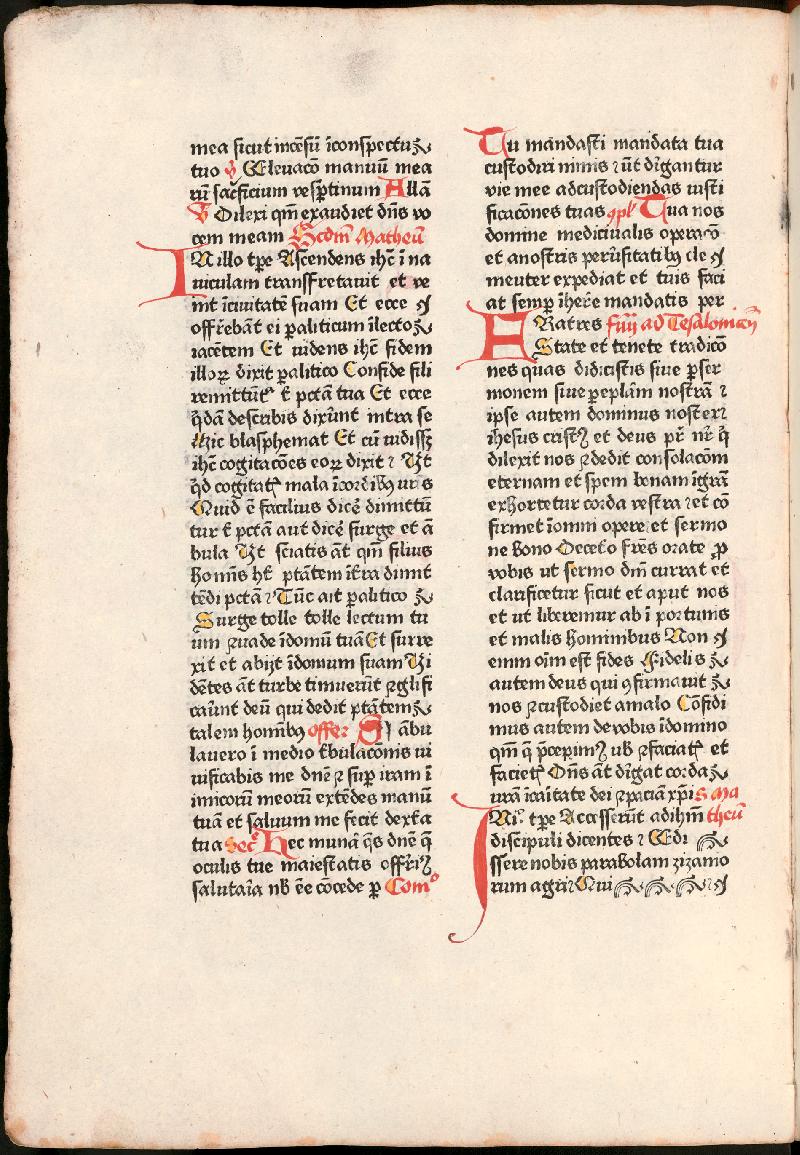 mea sicut incēsū īconspectu
tuo ℣ Eleuacō manuū mea
rū sac̄ficium vespertinum Allā
℣ Dilexi qm̄ exaudiet dn̄s vo
cem meam Scdm̄ Matheū
IN illo tp̄e Ascendens ih̄c ī na
uiculam transfretauit et ve
nit īciuitatē suam Et ecce
offerēbāt ei p̄aliticum īlecto
iacētem Et uidens ih̄c fidem
illoꝝ dixit p̄alitico Confide fili
remittūt᷑ t̄ pctā tua Et ecce
q̄dā describis dixūnt intra se
Hic blasphemat Et cū uidissꝫ
ih̄c cogitacōes eoꝝ dixit ⁊ Vt
qd cogitatꝭ mala īcordibꝰ vr̄s
Quid ē facilius dicē dimittū
tur t̄ pctā aut dicē surge et ā
bula Vt sciatis āt qm̄ filius
homīs ht̄ ptātem īt̄ra dimit
tēdi pctā ⁊ Tūc ait p̄alitico
Surge tolle tolle lectum tu
um ⁊uade īdomū tuā Et surre
xit et abijt īdomum suam Vi
dētes āt turbe timuerūt ⁊glīfi
caūnt deū qui dedit ptātem
talem homībꝰ offer Si ābu
lauero ī medio t̄bulacōnis ui
uificabis me dnē ⁊ suꝑ iram ī
imicorū meorū extēdes manū
tuā et saluum me fecit dext̄a
tua Sec̄ Hec munā q̄s dnē q̄
oculis tue maiestatis offerīꝫ
salutaīa nb̄ ēe cōcede ꝑ Comº
Tu mandasti mandata tua
custodiri nimis ⁊ ūt dīgantur
vie mee adcustodiendas iusti
ficacōnes tuas ꝯpl᷑ Tua nos
domine medicinalis operacō
et anostris perūsitatibꝰ cle
menter expediat et tuis faci
at semꝑ īherē mandatis per
FRatres s̄iij ad Tesalonicēs
State et tenete tradicō
nes quas didicistis siue ꝑser
monem siue ꝑep̄lam nostrā ⁊
ipse autem dominus noster ⁊
ihesus cristꝫ et deus pr̄ nr̄ q̄
dilexit nos ⁊dedit consolacōm
eternam et spem bonam īgrā
exhortetur corda vestra ⁊et cō
firmet īomni opere et sermo
ne bono Decet̄o fr̄es orate ꝓ
vobis ut sermo dn̄i currat et
clarificetur sicut et aput nos
et ut liberemur ab ī portunis
et malis hominibus Non
enim oīm est fides Fidelis
autem deus qui ꝯfirmauit
nos ⁊custodiet amalo Cōfidi
mus autem devobis īdomino
qm̄ q̄ p̄cepimꝫ ub̄ ⁊faciatꝭ et
facietꝭ Dn̄s āt dīgat corda
urā īcaītate dei ⁊paciā xp̄i S Ma
theū
INi° tp̄e Accesserūt adih̄m
discipuli dicentes ⁊ Edi
ssere nobis parabolam zizanio
rum agri ⁊ Qui